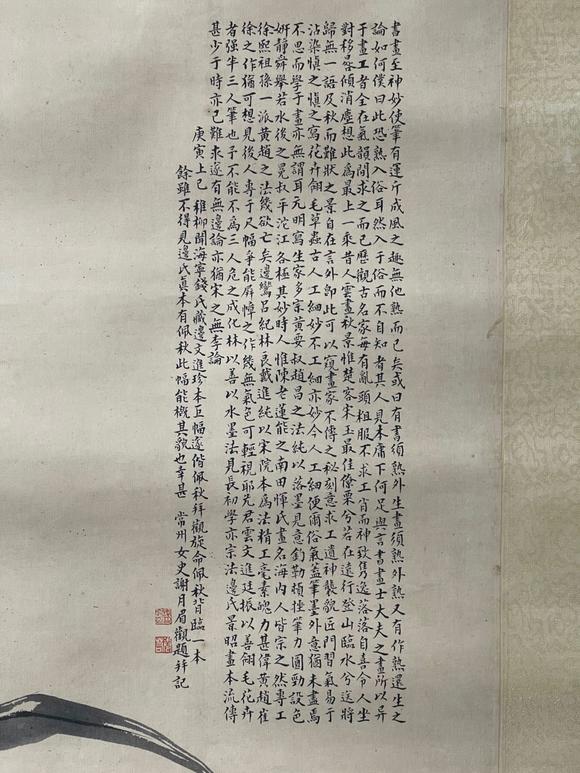 書畫至神妙使筆有運斤成風之趣無他熟而已矣或曰有書須熟外生畫須熟外熟又有作熟還生之
論如何僕曰此恐熟入俗耳然入于俗而不自知者其人見本庸下何足與言書畫士大夫之畫所以異
于畫工者全在氣韻間求之而已歷觀古名家每有亂頭粗服不求工肖而神致雋逸落落自喜令人坐
對移晷傾消塵想此為最上一乘昔人雲畫秋景惟楚客宋玉最佳僚栗兮若在遠行登山臨水兮送將
歸無一語及秋而難狀之景自在言外卽此可以窺畫家不傳之秘刻意求工遺神襲貌匠門習氣易于
沾染慎之慎之寫花卉翎毛草蟲古人工細妙不工細亦妙今人工細便爾俗氣蓋筆墨外意猶未盡焉
不思而學于畫亦無謂耳元明寫生家多宗黃要叔趙昌之法純以落墨見意釣勒頓挫筆力圓勁設色
姸靜舜舉若水後之冕叔平沱江各極其妙時人惟陳老蓮能之南田惲氏畫名海內人皆宗之然專工
徐熙祖孫一派黃趙之法幾欲亡矣邊鸞呂紀林良戴進純以宋院本為法精工毫素魄力甚偉黃趙崔
徐之作猶可想見後人專于尺幅爭能屏幛之作幾無氣色可輕視耶芃君雲文進廷振以善翎毛花卉
者强半三人筆也予不能不為三人危之成化林以善以水墨法見長初學亦宗法邊氏景昭畫本流傳
甚少于時亦已難求遂有無邊論亦猶宋之無李論
庚寅上巳 稚柳聞海寧錢氏藏邊文進珍本巨幅遂偕佩秋拜觀旋命佩秋背臨一本
餘雖不得見邊氏真本有佩秋此幅能概其貌也幸甚 常州女史謝月眉觀題幷記